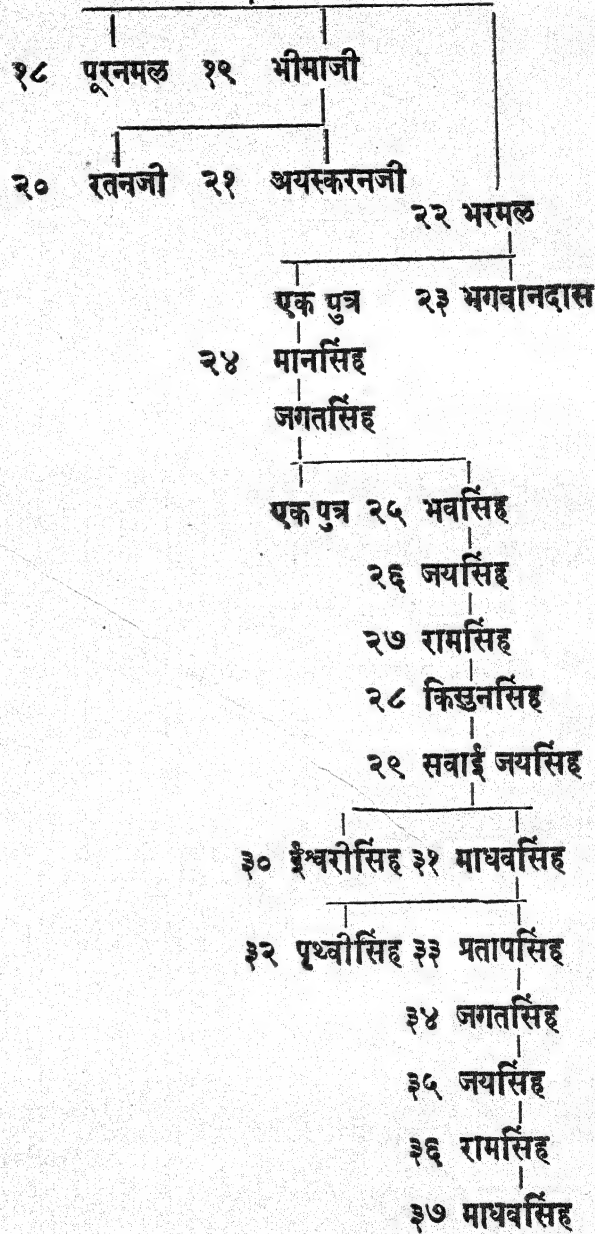 १८ पूरनमल १९ भीमाजी
२० रतनजी २१ अयस्करनजी
२२ भरमल
एक पुत्र २३ भगवानदास
२४ मानसिंह
जगतसिंह
एक पुत्र २५ भवसिंह
२६ जयसिंह
२७ रामसिंह
२८ किसुनसिंह
२९ सवाई जयसिंह
३० ईश्वरीसिंह ३१ माधवसिंह
३२ पृथ्वीसिंह ३३ प्रतापसिंह
३४ जगतसिंह
३५ जयसिंह
३६ रामसिंह
३७ माधवसिंह